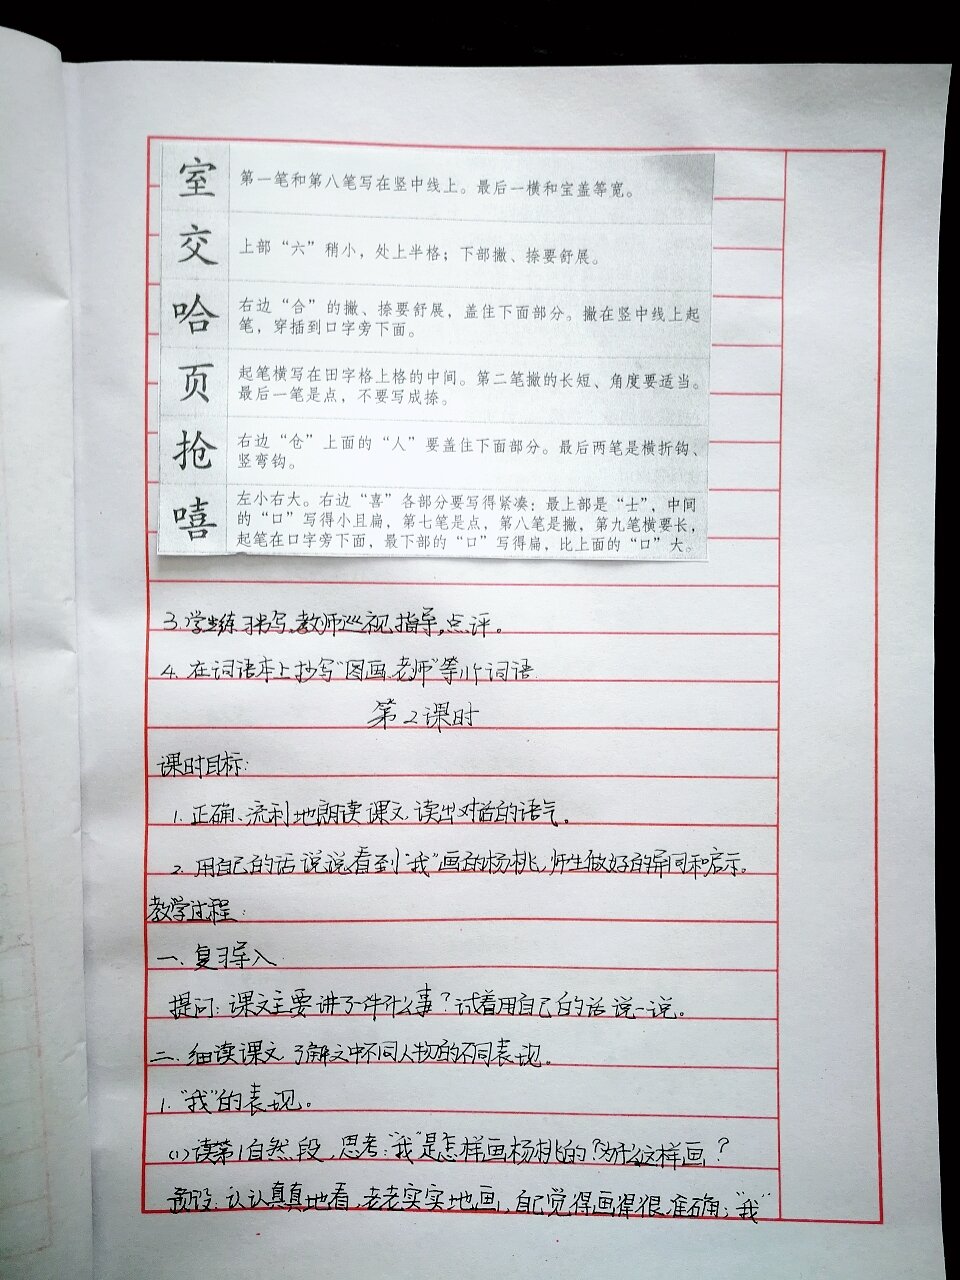 室 第一笔和第八笔写在竖中线上。最后一横和宝盖等宽。
交 上部“六”稍小，处上半格；下部撇、捺要舒展。
哈 右边“合”的撇、捺要舒展，盖住下面部分。撇在竖中线上起
笔，穿插到口字旁下面。
页 起笔横写在田字格上格的中间。第二笔撇的长短、角度要适当。
最后一笔是点，不要写成捺。
抢 右边“仓”上面的“人”要盖住下面部分。最后两笔是横折钩、
竖弯钩。
嘻 左小右大。右边“喜”各部分要写得紧凑：最上部是“士”，中间
的“口”写得小且扁，第七笔是点，第八笔是撇，第九笔横要长，
起笔在口字旁下面，最下部的“口”写得扁，比上面的“口”大。
3.学生练习书写，教师巡视，指导，点评。
4.在词语本上抄写“图画、老师”等11个词语
第2课时
课时目标：
1.正确、流利地朗读课文，读出对话的语气。
2.用自己的话说说看到“我”画的杨桃，师生做好的异同和启示。
教学过程：
一.复习导入
提问：课文主要讲了一件什么事？试着用自己的话说一说。
二.细读课文，了解文中不同人物的不同表现。
1.“我”的表现。
(1)读第1自然段，思考：“我”是怎样画杨桃的？为什么这样画？
预设：认认真真地看，老老实实地画，自己觉得画得很准确；“我”